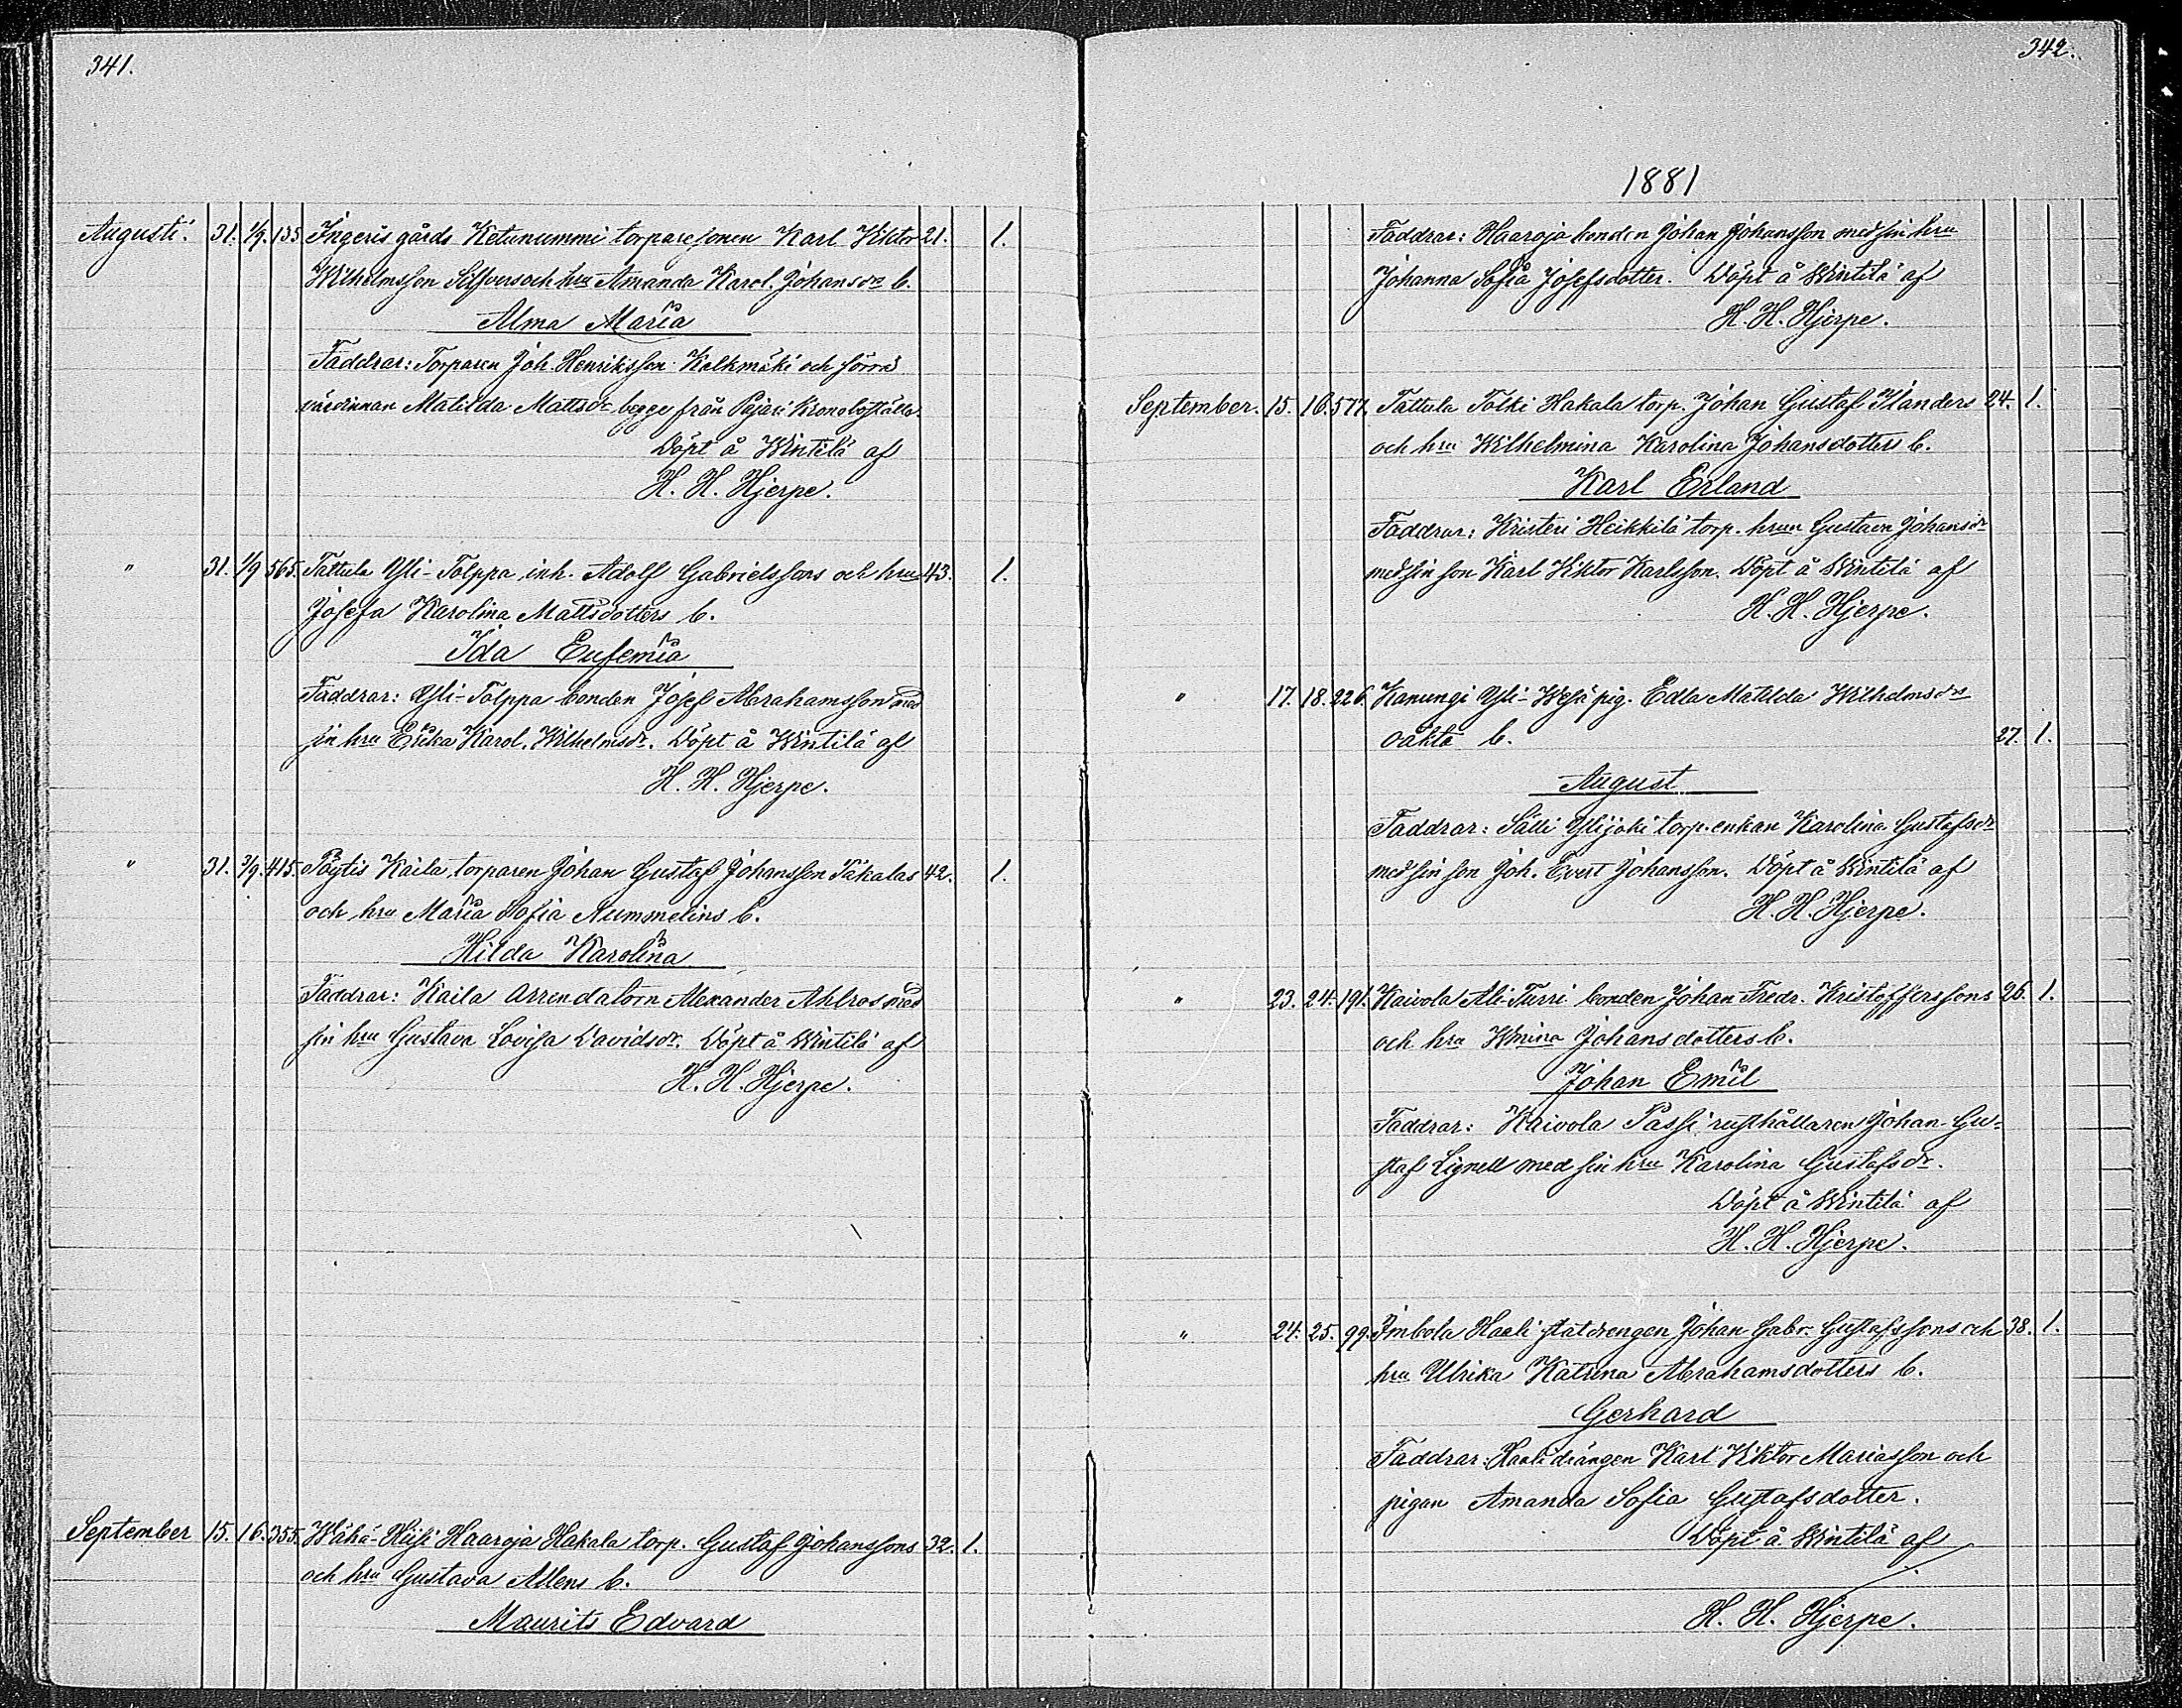 341.
Augusti. 31. 1/9. 135 Ingeris gårds Ketunummi torparesonen Karl Viktor 21. 1.
Wilhelmsson Silfvers och hru Amanda Karol. Johansdrs b.
Alma Maria
Faddrar: Torparen Joh. Henriksson Kalkmäki och förra
värdinnan Matilda Mattsdr. begge från Pajari Kronoboställe.
Döpt å Wintilä af
H. H. Hjerpe.
" 31. 1/9 565. Tattula Yli-Tolppa inh. Adolf Gabrielssons och hru 43. 1.
Josefa Karolina Mattsdotters b.
Ida Eufemia
Faddrar: Yli-Tolppa bonden Josef Abrahamsson med
sin hru Erika Karol. Wilhelmsdr. Döpt å Wintilä af
H. H. Hjerpe.
" 31. 3/9. 415. Pöytis Kaila torparen Johan Gustaf Johansson Takalas 42. 1.
och hru Maria Sofia Nummelins b.
Hilda Karolina
Faddrar: Kaila Arrendatorn Alexander Ahlros med
sin hru Gustava Lovisa Davidsdr. Döpt å Wintilä af
H. H. Hjerpe.
September 15. 16. 355. Wähä-Hiisi Haaroja Hakala torp. Gustaf Johanssons 32. 1.
och hru Gustava Allens b.
Maurits Edvard
342.
1881
Faddrar: Haaroja bonden Johan Johansson med sin hru
Johanna Sofia Josefsdotter. Döpt å Wintilä af
H. H. Hjerpe.
September. 15. 16. 577. Tattula Tolki Hakala torp. Johan Gustaf Ilanders 24. 1.
och hru Wilhelmina Karolina Johansdotters b.
Karl Erland
Faddrar: Kristeri Heikkilä torp. hrun Gustava Johansdr
med sin son Karl Viktor Karlsson. Döpt å Wintilä af
H. H. Hjerpe.
" 17. 18. 226. Kanungi Yli-Wesä pig. Edla Matilda Wilhelmsdrs
oäkta b. 27. 1.
August
Faddrar: Sälli Ylijoki torp. enkan Karolina Gustafsdr
med sin son Joh. Evert Johansson. Döpt å Wintilä af
H. H. Hjerpe.
" 23. 24. 191. Kaivola Ali-Turri bonden Johan Fredr. Kristofferssons 26. 1.
och hru Wmina Johansdotters b.
Johan Emil
Faddrar: Kaivola Passi rusthållaren Johan Gu-
staf Lignell med sin hru Karolina Gustafsdr.
Döpt å Wintilä af
H. H. Hjerpe.
" 24. 25. 99. Imbola Haali statdrengen Johan Gabr. Gustafssons och 38. 1.
hru Ulrika Katrina Abrahamsdotters b.
Gerhard
Faddrar: Haali drängen Karl Viktor Mariasson och
pigan Amanda Sofia Gustafsdotter.
Döpt å Wintilä af
H. H. Hjerpe.